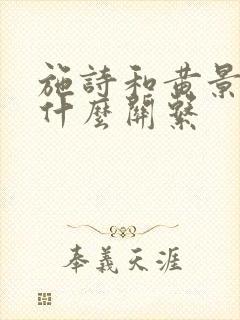 施詩和黃景
什麼關繫
奉義天涯